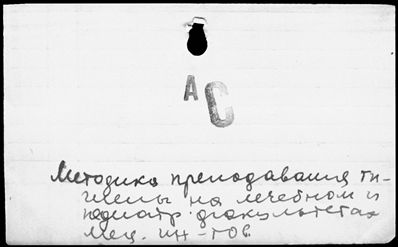 АС
Методика преподавания ги-
гиены на лечебном и
педиатр. факультетах
мед. ин-тов.